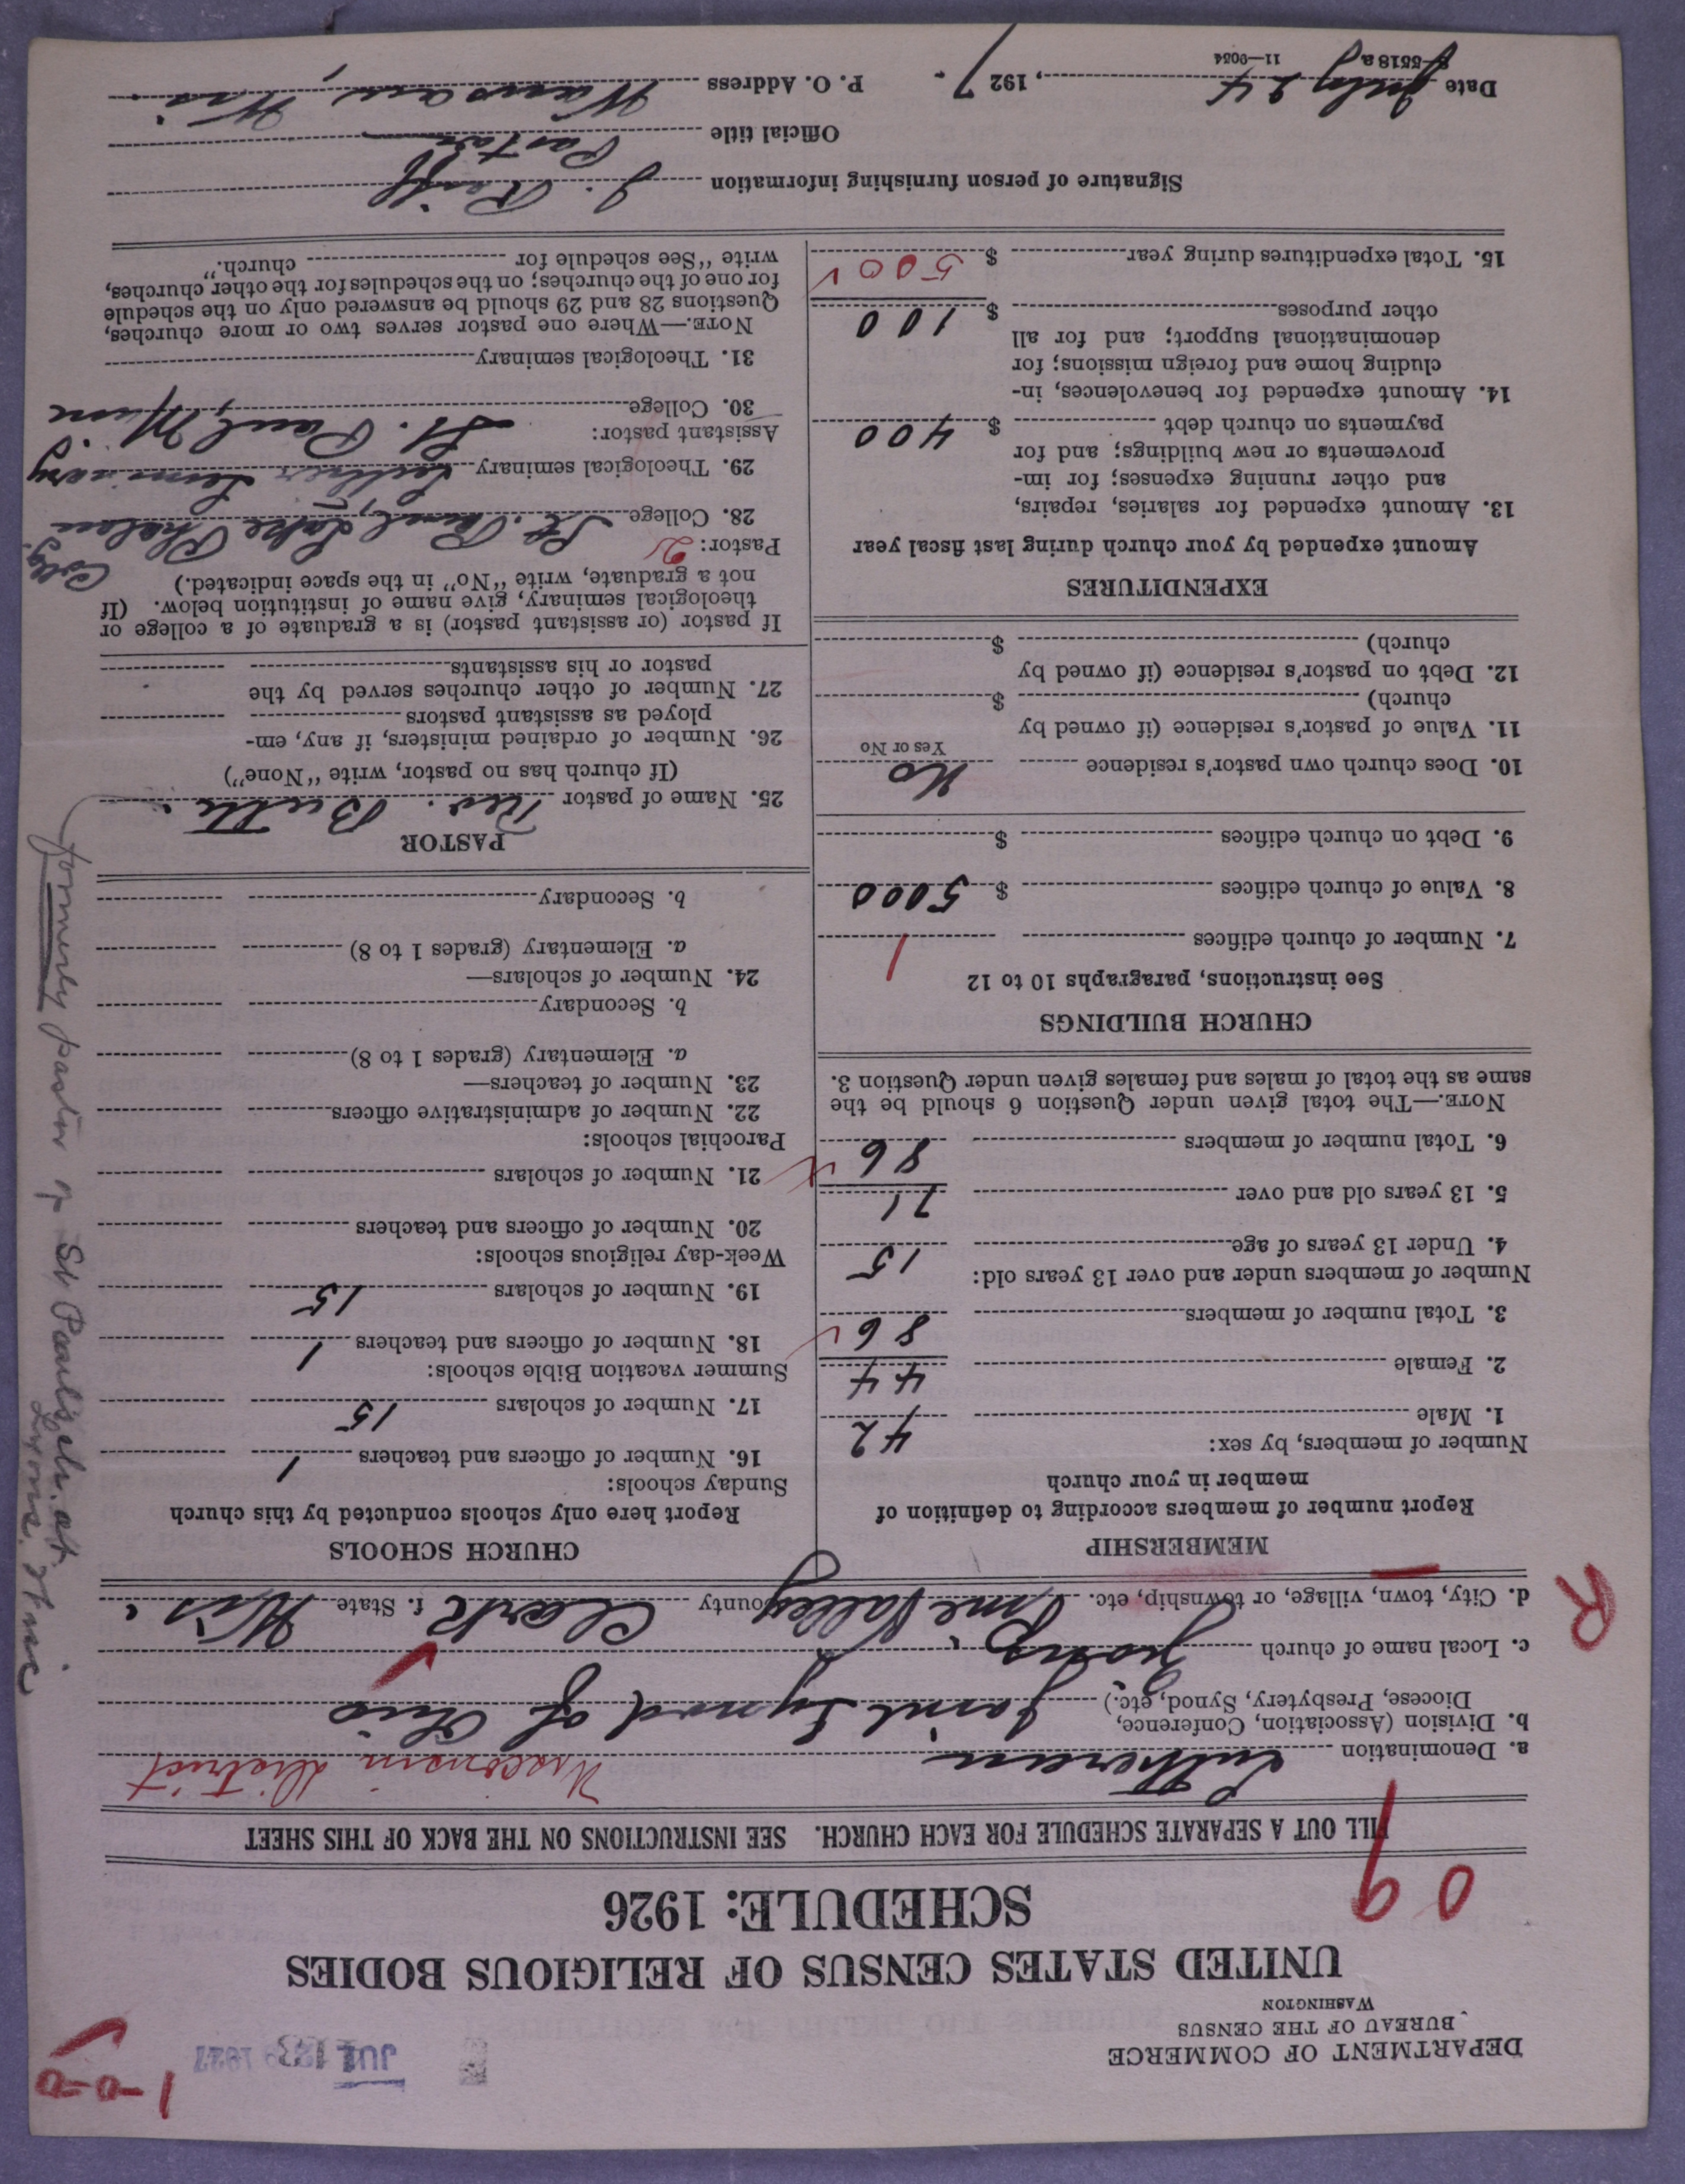 1-0-0
DEPARTMENT OF COMMERCE
BUREAU OF THE CENSUS
WASHINGTON
UNITED STATES CENSUS OF RELIGIOUS BODIES
SCHEDULE: 1926
09
FILL OUT A SEPARATE SCHEDULE FOR EACH CHURCH. SEE INSTRUCTIONS ON THE BACK OF THIS SHEET
a. Denomination Lutheran Wisconsin District
b. Division (Association, Conference,
Diocese, Presbytery, Synod, etc.) Joint Synod of Ohio
c. Local name of church
d. City, town, village, or township, etc. Pine Valley County Clark f. State Wis.
R
MEMBERSHIP
Report number of members according to definition of
member in your church
Number of members, by sex:
1. Male 42
2. Female 44
3. Total number of members 86
Number of members under and over 13 years old:
4. Under 13 years of age 15
5. 13 years old and over 71
6. Total number of members 86
NOTE.—The total given under Question 6 should be the
same as the total of males and females given under Question 3.
CHURCH BUILDINGS
See instructions, paragraphs 10 to 12
7. Number of church edifices 1
8. Value of church edifices $ 5000
9. Debt on church edifices $
10. Does church own pastor's residence No
Yes or No
11. Value of pastor's residence (if owned by
church) $
12. Debt on pastor's residence (if owned by
church) $
EXPENDITURES
Amount expended by your church during last fiscal year
13. Amount expended for salaries, repairs,
and other running expenses; for im-
provements or new buildings; and for
payments on church debt $ 400
14. Amount expended for benevolences, in-
cluding home and foreign missions; for
denominational support; and for all
other purposes $ 100
15. Total expenditures during year $ 500
CHURCH SCHOOLS
Report here only schools conducted by this church
Sunday schools:
16. Number of officers and teachers 1
17. Number of scholars 15
Summer vacation Bible schools:
18. Number of officers and teachers 1
19. Number of scholars 15
Week-day religious schools:
20. Number of officers and teachers
21. Number of scholars
Parochial schools:
22. Number of administrative officers
23. Number of teachers—
a. Elementary (grades 1 to 8)
b. Secondary
24. Number of scholars—
a. Elementary (grades 1 to 8)
b. Secondary
PASTOR
25. Name of pastor Rev.
(If church has no pastor, write "None")
26. Number of ordained ministers, if any, em-
ployed as assistant pastors
27. Number of other churches served by the
pastor or his assistants
If pastor (or assistant pastor) is a graduate of a college or
theological seminary, give name of institution below. (If
not a graduate, write "No" in the space indicated.)
Pastor: 2
28. College St. Paul, Lake Phalen Colg.
29. Theological seminary Luther Seminary
St. Paul, Minn
Assistant pastor:
30. College
31. Theological seminary
NOTE.—Where one pastor serves two or more churches,
Questions 28 and 29 should be answered only on the schedule
for one of the churches; on the schedules for the other churches,
write "See schedule for church."
formerly pastor of St Paul's ch. at
Signature of person furnishing information J.
Official title Pastor
P. O. Address Wausau, Wis.
Date July 24, 1927.
8—5518a 11—9034